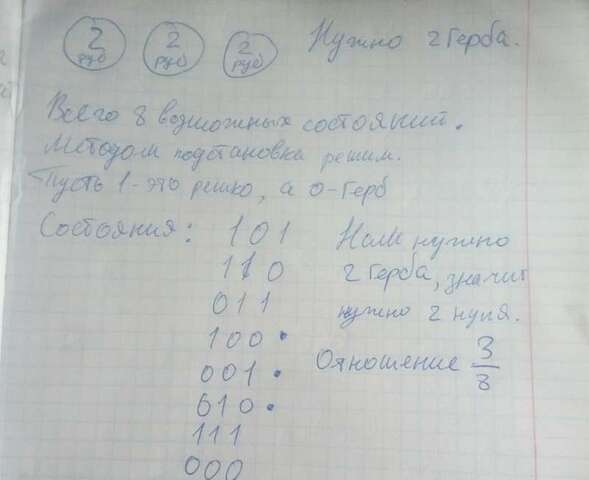 2 руб 2 руб 2 руб Нужно 2 герба.
Всего 8 возможных состояний.
Методом подстановка решим.
Пусть 1-это решко, а 0-герб
Состояния: 101 Нам нужно
110 2 герба, значит
011 нужно 2 нуля.
100 • Отношение 3/8
001 •
010 •
111
000